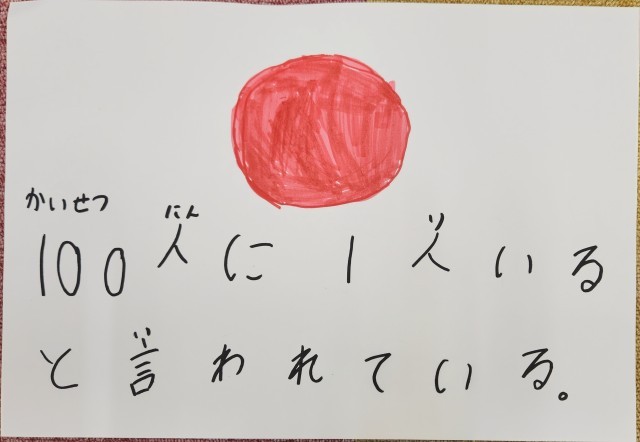 かいせつ
100人に1人いる
と言われている。
にん
り
い